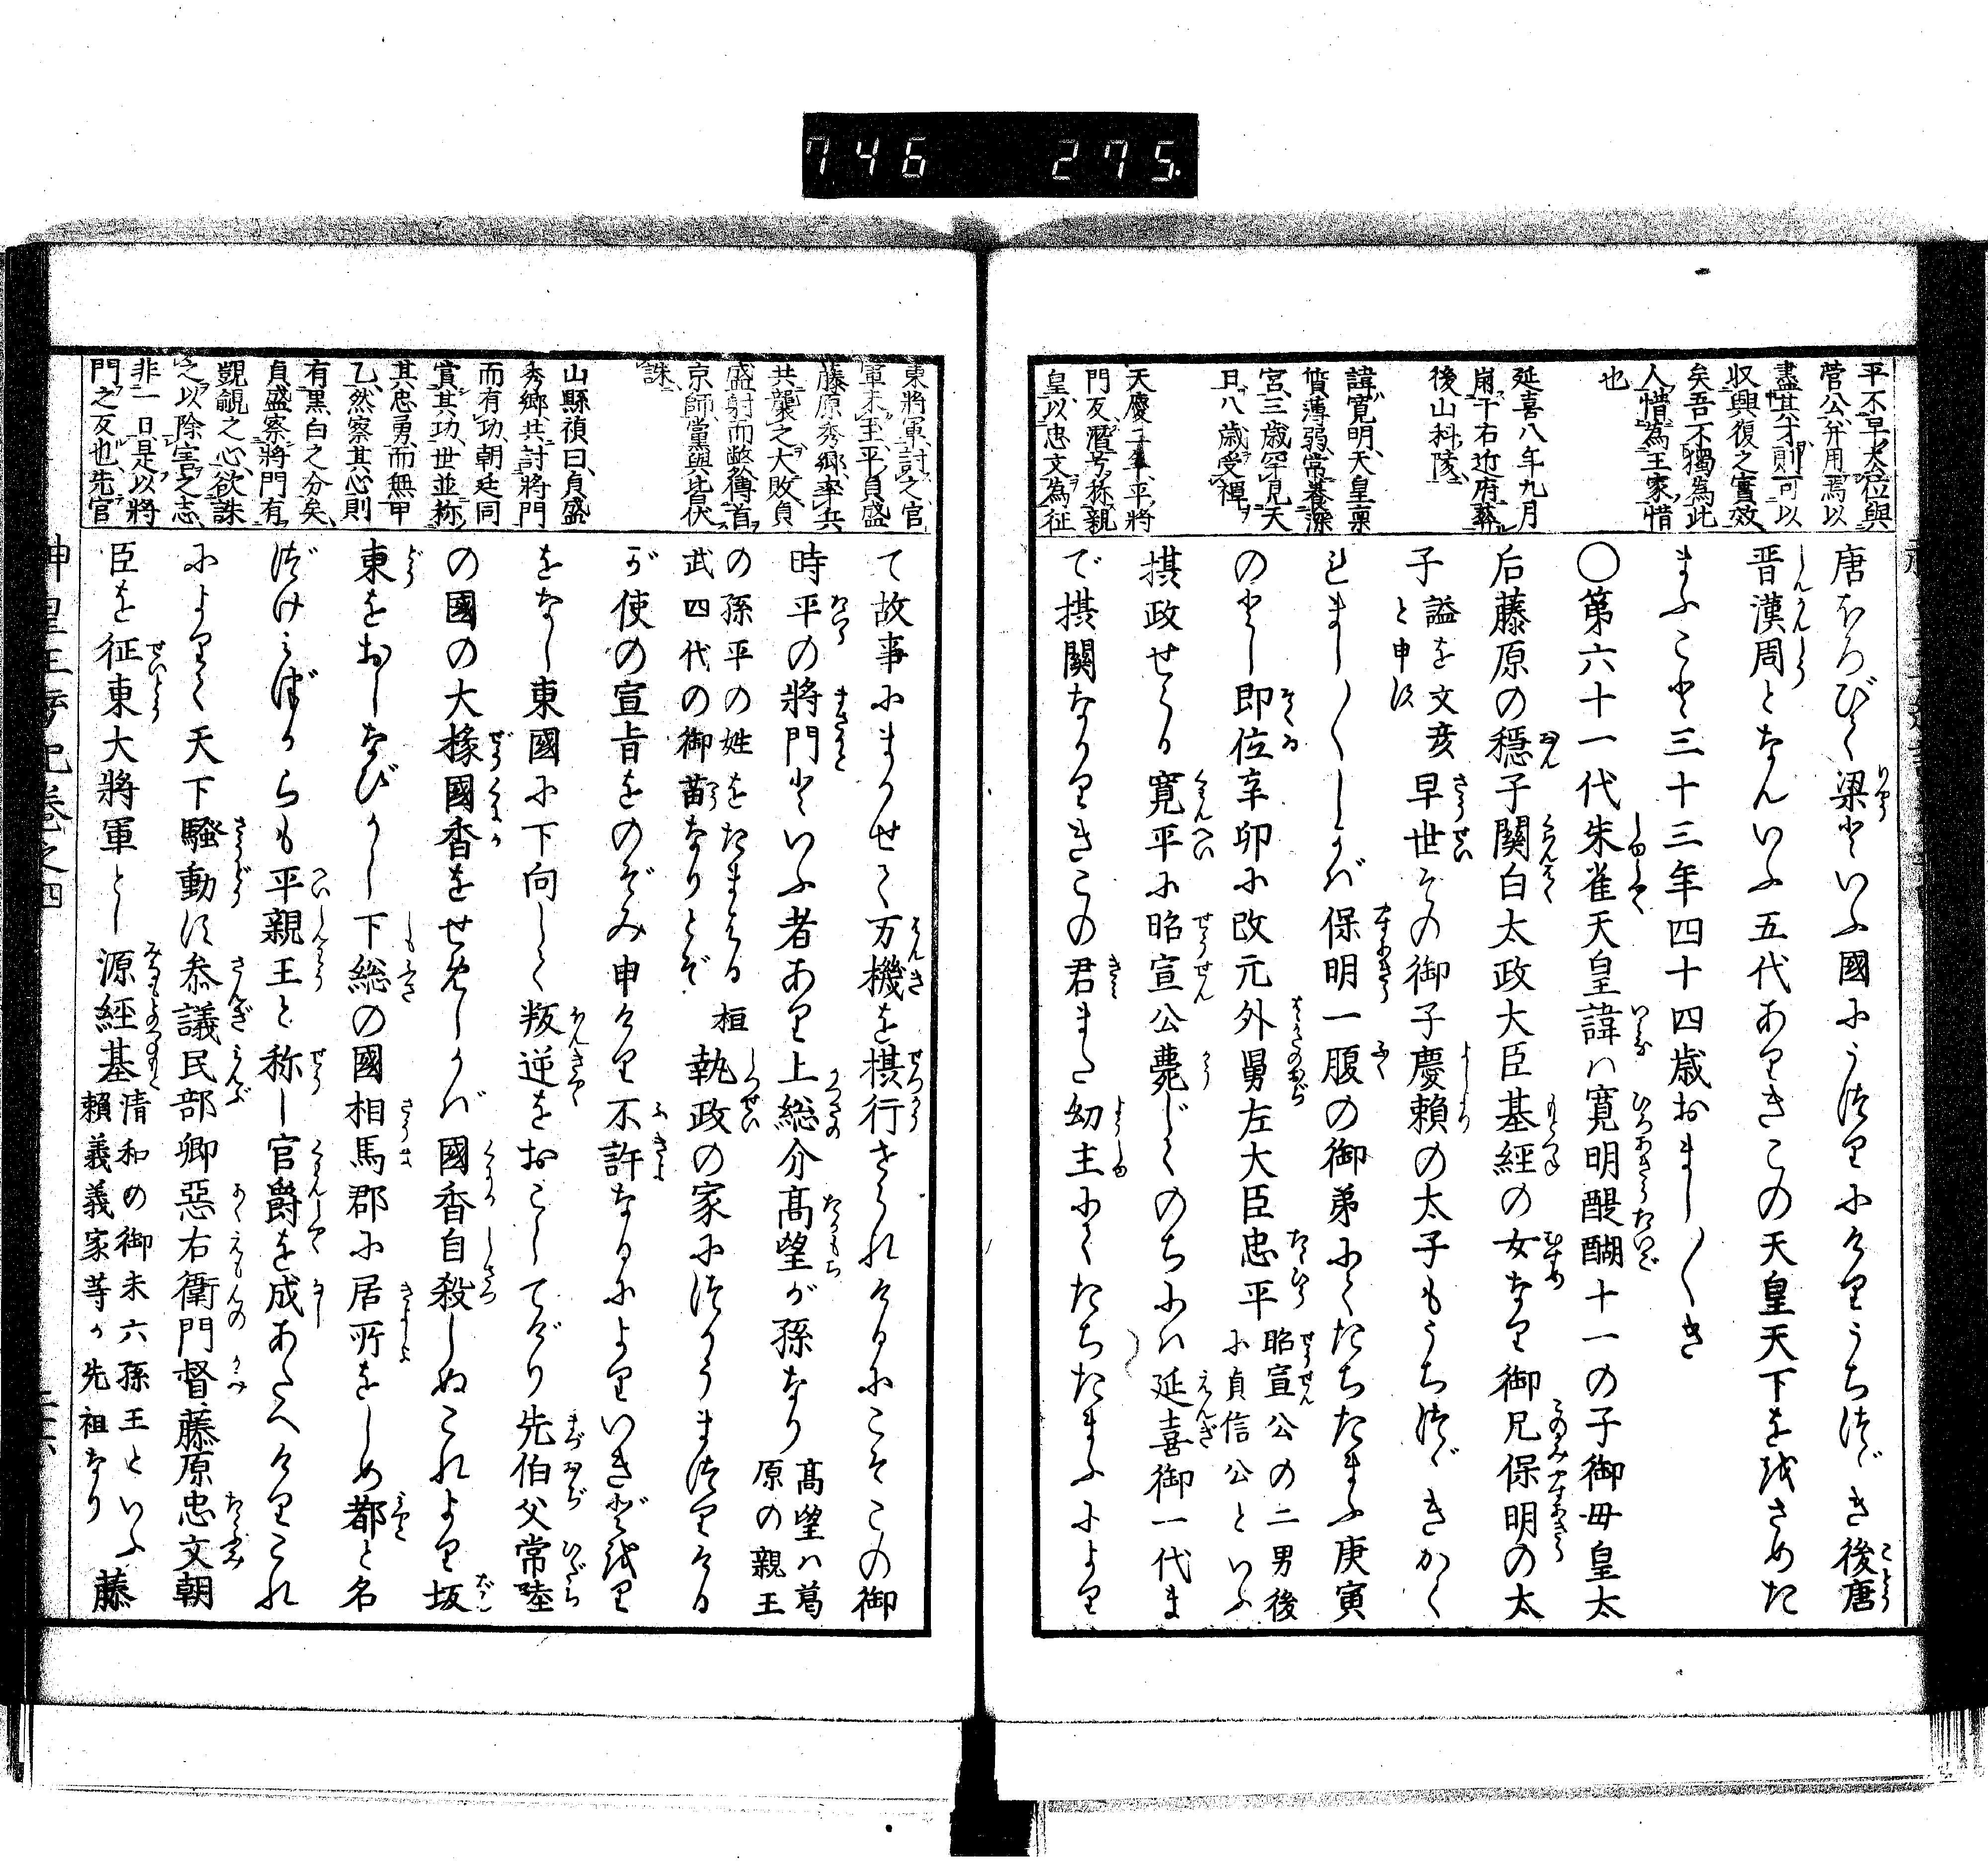 746 275.
平不早大位與
菅公弁用焉以
盡其才則可以
収興復之實效
矣吾不獨為此
人惜為王家惜
也
延喜八年九月
崩于右近府葬
後山科陵
諱寛明天皇稟
質薄弱常養深
宮三歳罕見天
日八歳受禅
天慶二年平將
門反潛号称親
皇以忠文為征
唐ほろびて梁といふ國にうつりにけりうちつゞき後唐
晋漢周となんいふ五代ありきこの天皇天下を越さめた
まふこと三十三年四十四歳おまし〳〵き
〇第六十一代朱雀天皇諱ハ寛明醍醐十一の子御母皇太
后藤原の穏子關白太政大臣基經の女なり御兄保明の太
子謚を文彦と申す早世その御子慶頼の太子もうちつゞきかく
れまし〳〵しかバ保明一腹の御弟にてたちたまふ庚寅
の年即位辛卯に改元外舅左大臣忠平昭宣公の二男後に貞信公といふ
摂政せらる寛平に昭宣公薨じてのちにハ延喜御一代ま
で摂關なかりきこの君また幼主にてたちたまふにより
東將軍討之官
軍未至平貞盛
藤原秀郷率兵
共襲之大敗貞
盛射而斃餘傳首
京師黨與皆伏
誅
山縣禎曰貞盛
秀郷共討將門
而有功朝廷同
賞其功世並称
其忠勇而無甲
乙然察其心則
有黒白之分矣
貞盛察將門有
覬覦之心欲誅
之以除害之志
非一日是以將
門之反也先官
て故事にまかせて万機を摂行せられけるにこそこの御
時平の將門といふ者あり上総介髙望が孫なり髙望ハ葛原の親王
の孫平の姓をたまはる桓武四代の御苗なりとぞ執政の家につかうまつりける
が使の宣旨をのぞみ申けり不許なるによりいきどほり
をなし東國に下向して叛逆をおこしてけり先伯父常陸
の國の大掾國香をせめしかバ國香自殺しぬこれより坂
東をおしなびかし下総の國相馬郡に居所をしめ都と名
づけみづからも平親王と称し官爵を成あたへけりこれ
によりて天下騒動す叅議民部卿惡右衛門督藤原忠文朝
臣を征東大將軍とし源經基清和の御末六孫王といふ頼義義家等が先祖なり藤